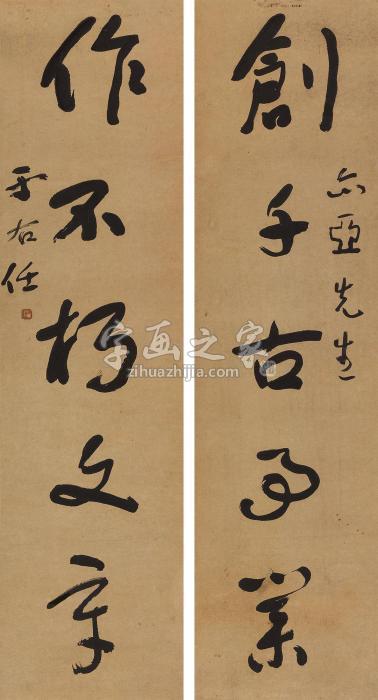 亞先生
創千古事業
作不朽文章
于右任
字画之家
zihuazhijia.com